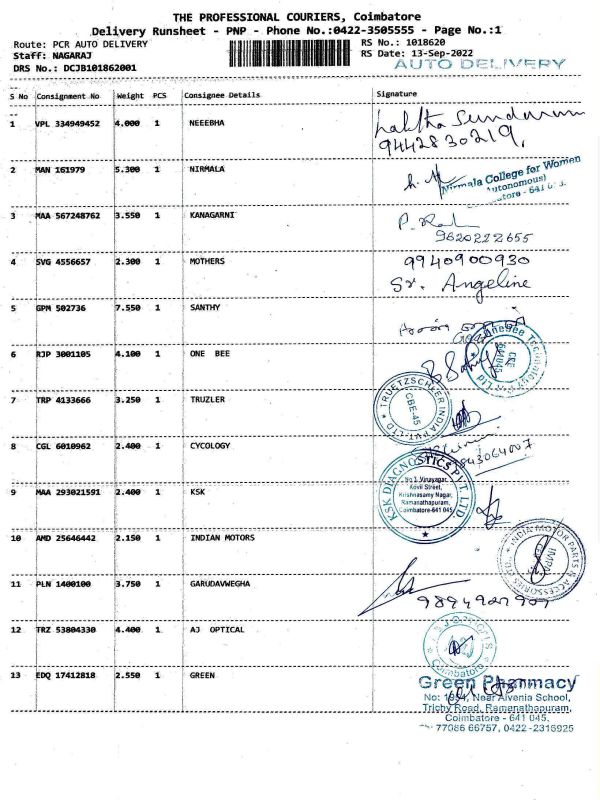 THE PROFESSIONAL COURIERS, Coimbatore
Delivery Runsheet - PNP - Phone No.:0422-3505555 - Page No.:1
Route: PCR AUTO DELIVERY RS No.: 1018620
Staff: NAGARAJ RS Date: 13-Sep-2022
DRS No.: DCJB101862001 AUTO DELIVERY
S No Consignment No Weight PCS Consignee Details Signature
1 VPL 334949452 4.000 1 NEEEBHA Lalitha Sundaram
9442830219.
2 MAN 161979 5.300 1 NIRMALA
Nirmala College for Women
(Autonomous)
3 MAA 567248762 3.550 1 KANAGARNI
9620222655
4 SVG 4556657 2.300 1 MOTHERS 9940900930
Sr. Angeline
5 GPM 502736 7.550 1 SANTHY
6 RJP 3001105 4.100 1 ONE BEE
CBE
641045
7 TRP 4133666 3.250 1 TRUZLER
TRUETZSCHLER INDIA PVT. LTD
CBE-45
8 CGL 6010962 2.400 1 CYCOLOGY
9 MAA 293021591 2.400 1 KSK
KSK DIAGNOSTICS PVT LTD
No 3, Vinayagar
Kovil Street,
Krishnasamy Nagar,
Ramanathapuram,
Coimbatore-641 045.
10 AMD 25646442 2.150 1 INDIAN MOTORS
INDIA MOTOR PARTS & ACCESSORIES LTD.
11 PLN 1400100 3.750 1 GARUDAVWEGHA
12 TRZ 53804330 4.400 1 AJ OPTICAL
Coimbatore
13 EDQ 17412818 2.550 1 GREEN
Green Pharmacy
Near Alvenia School,
Trichy Road, Ramanathapuram,
Coimbatore - 641 045.
77086 66757, 0422-2316925